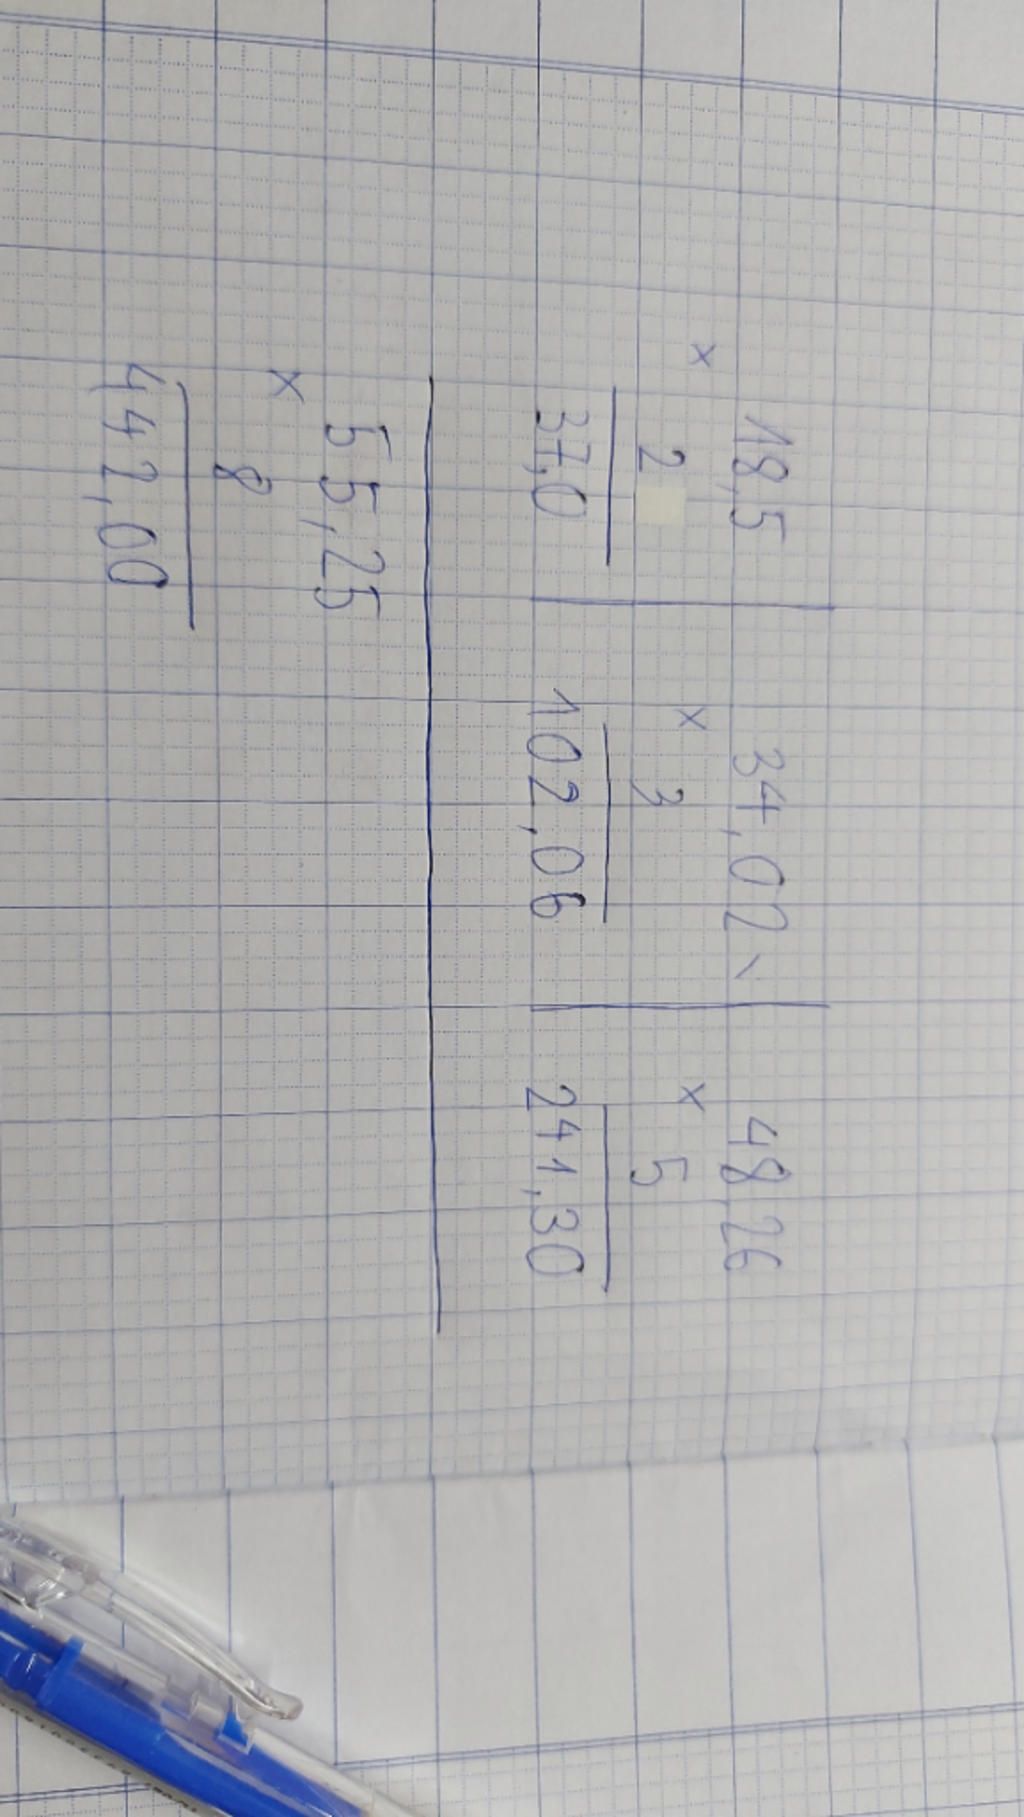 18,5
× 2
37,0
34,02
× 3
102,06
48,26
× 5
241,30
55,25
× 8
442,00